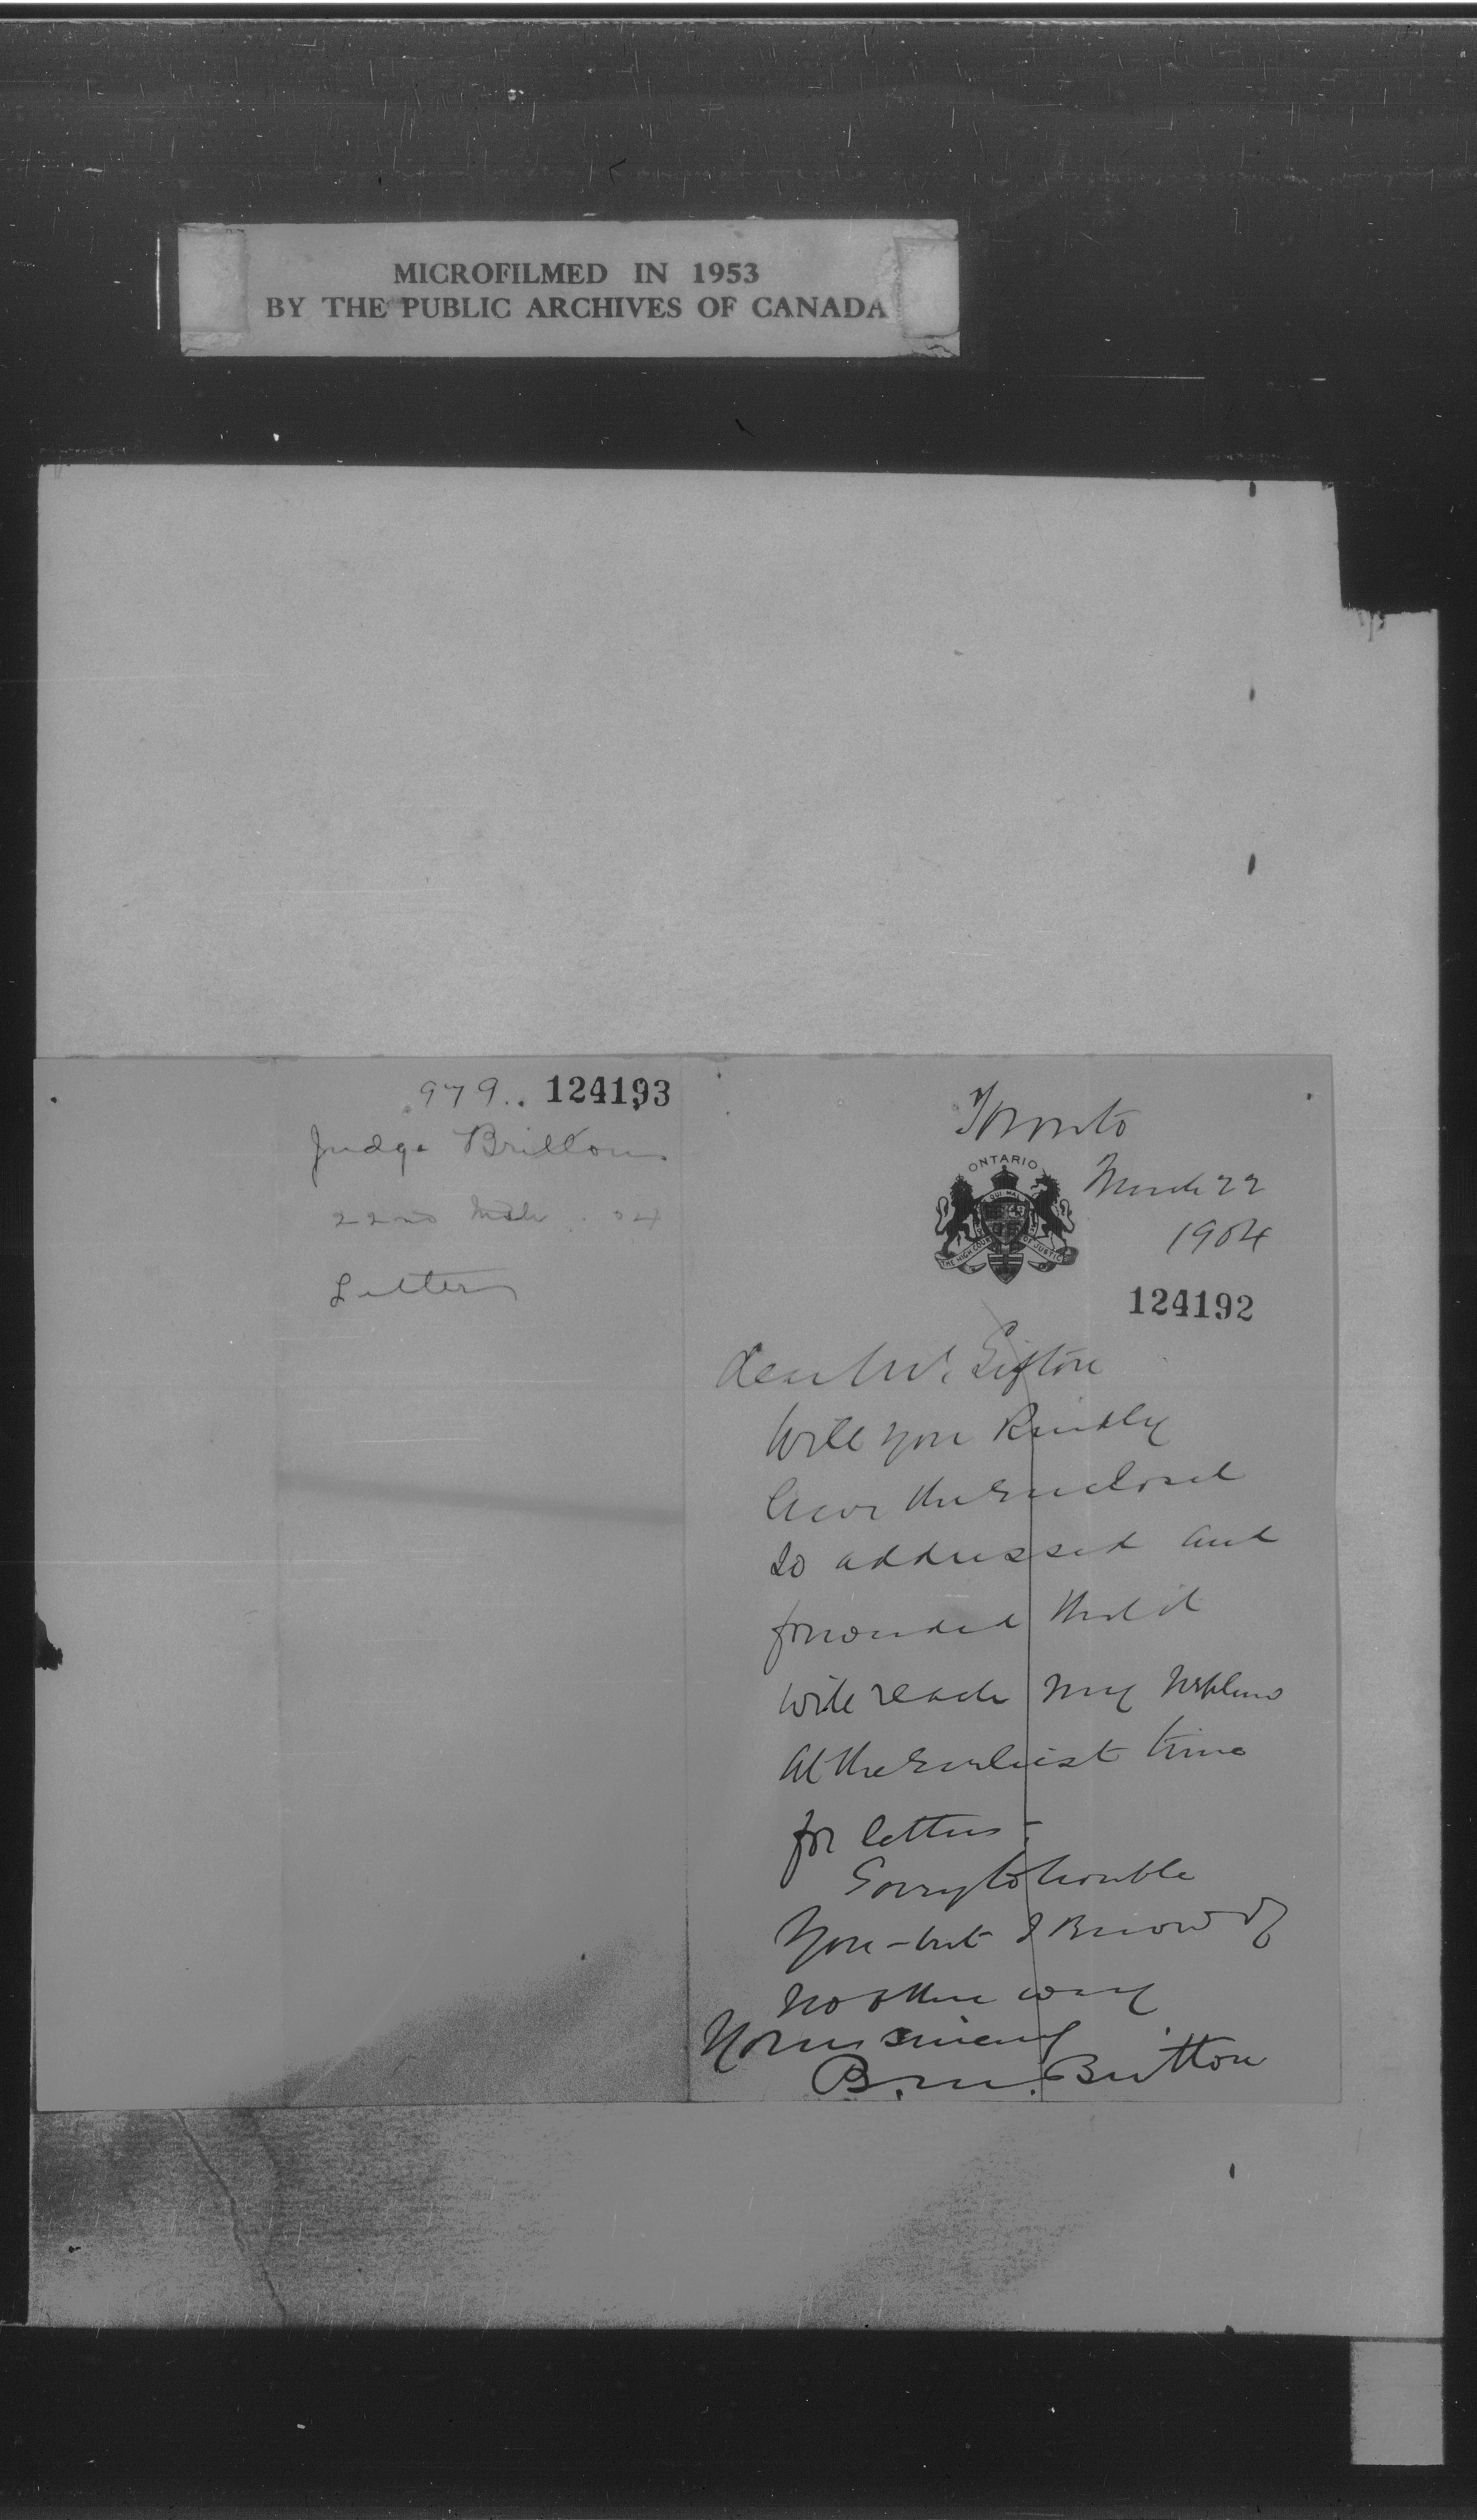 MICROFILMED IN 1953
BY THE PUBLIC ARCHIVES OF CANADA
979.. 124193
Judge Britton
22nd Mch. 04
Letter
Toronto
ONTARIO
March 22
1904
THE HIGH COURT OF JUSTICE
124192
Dear Mr. Sifton
Will you kindly
have the enclosed
so addressed and
forwarded that it
will reach my nephew
at the earliest time
for letters-
Sorry to trouble
you - but I know of
no other way
Yours sincerely
B. M. Britton